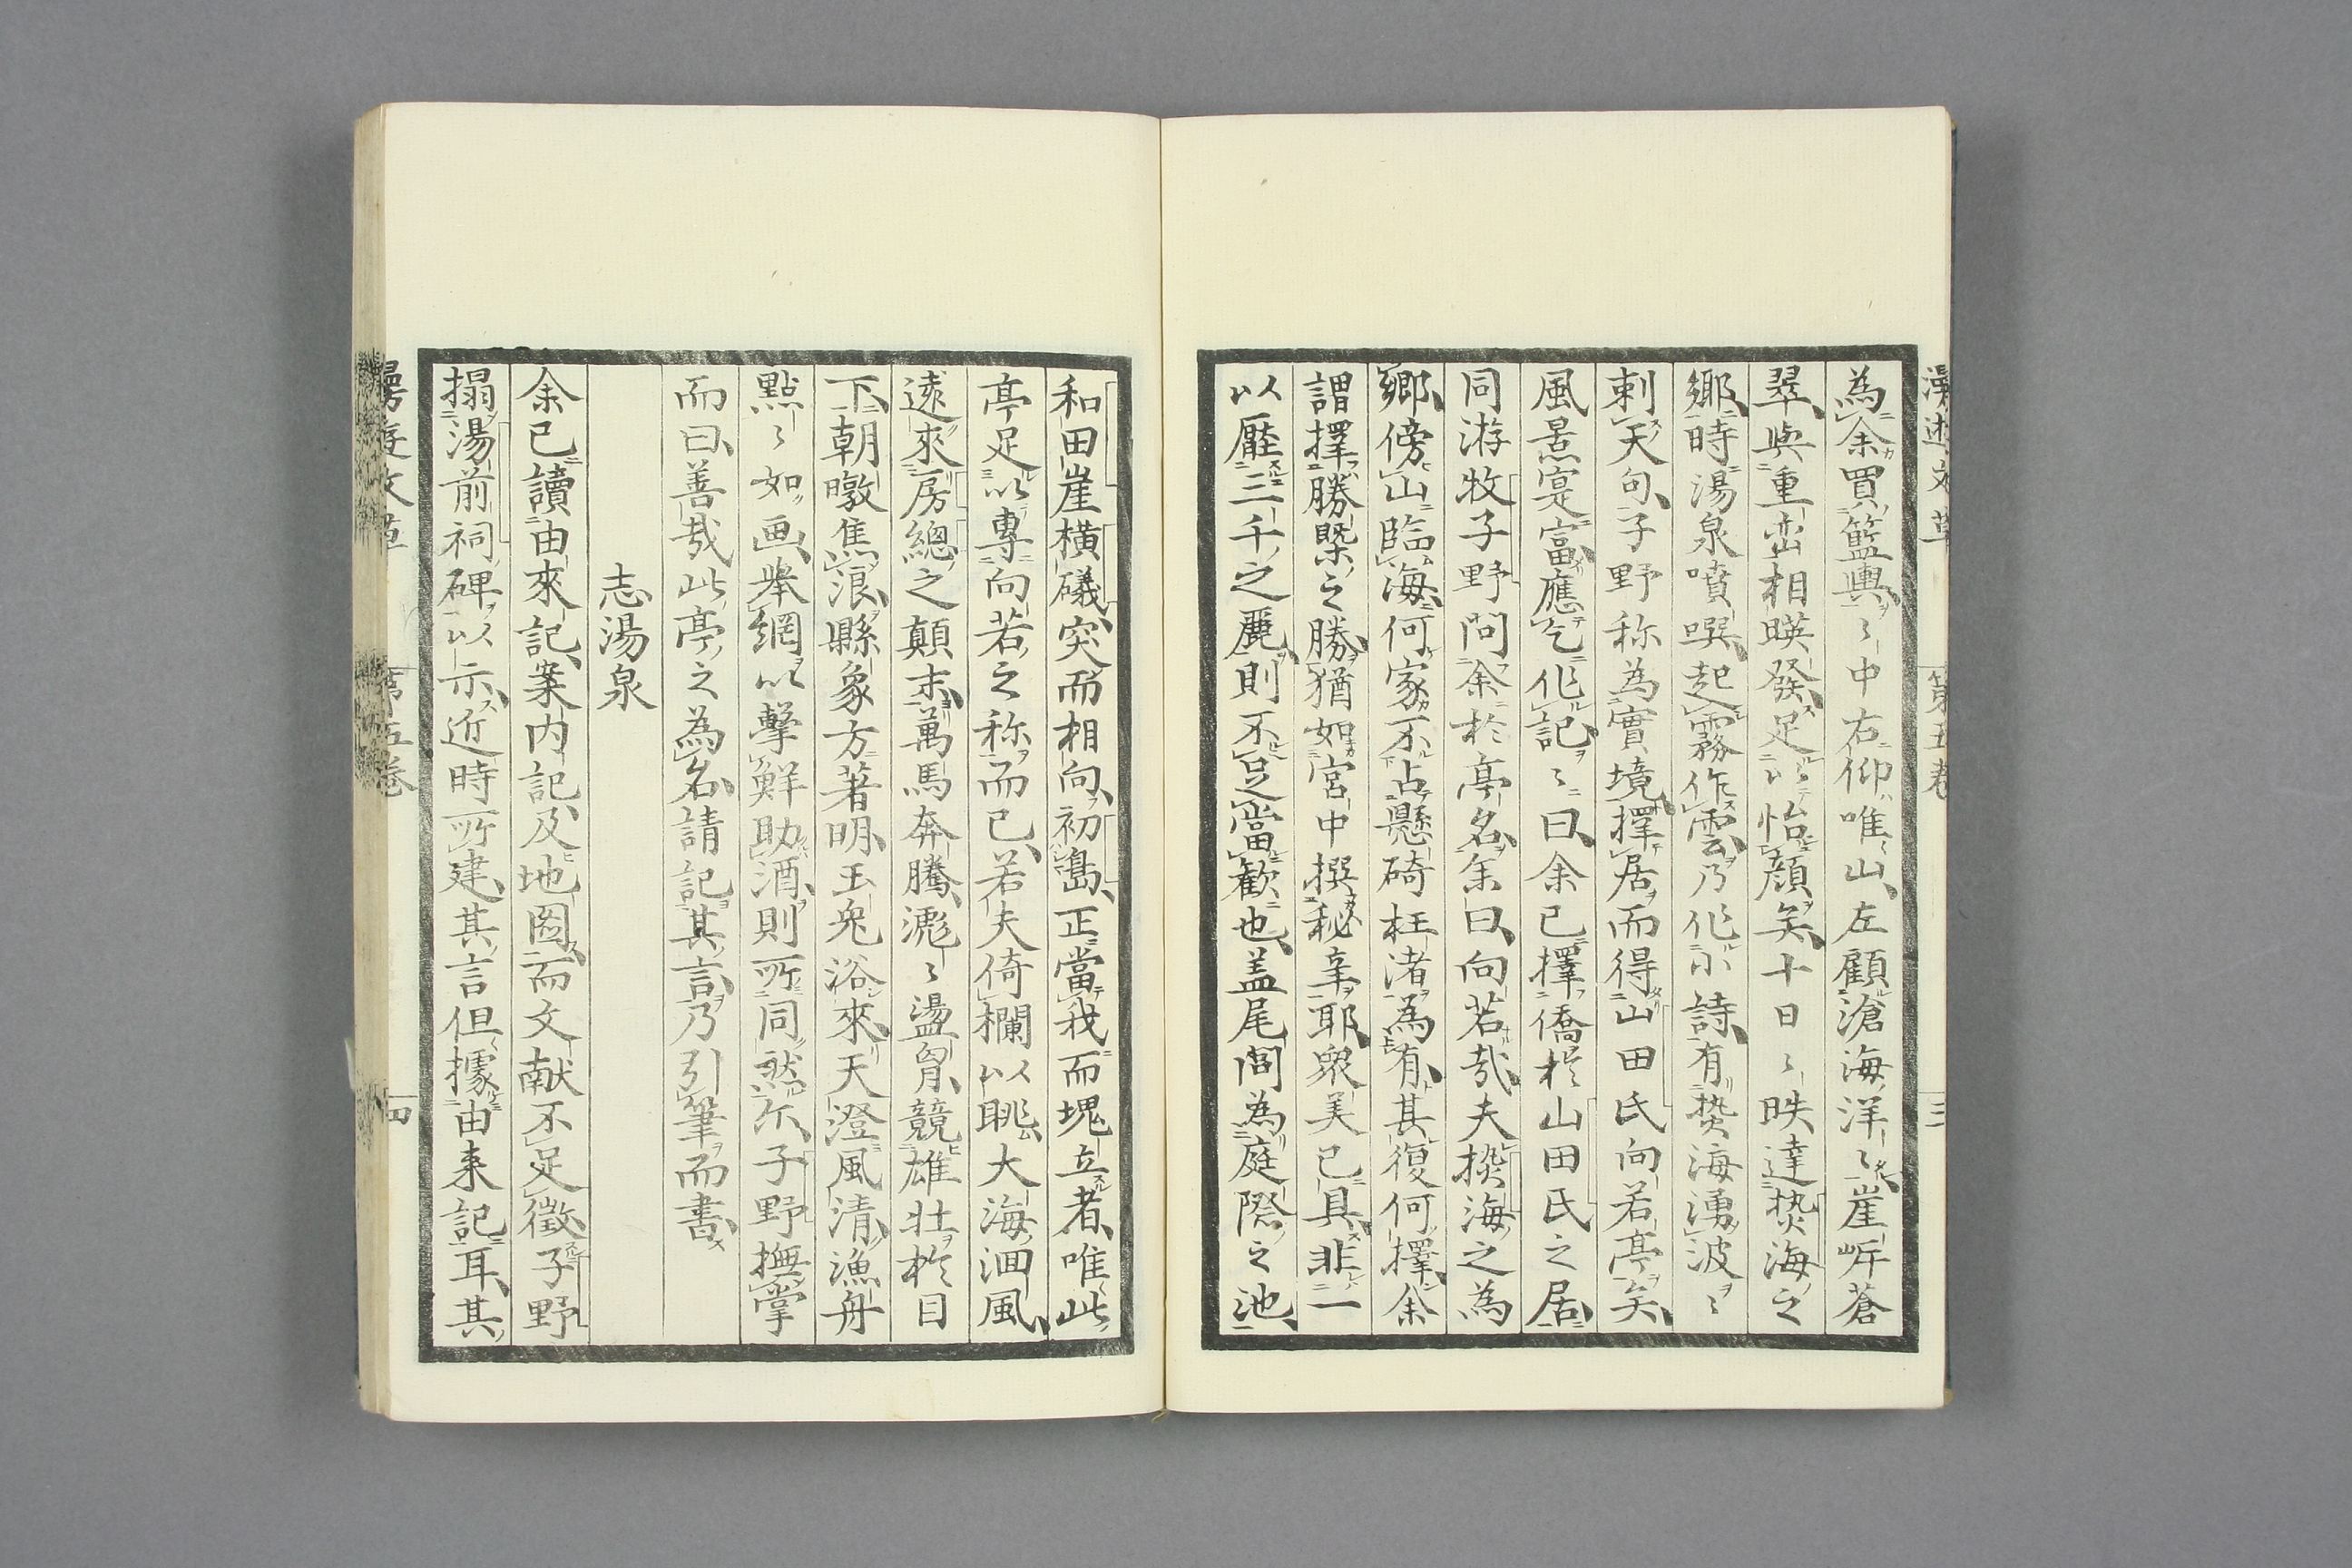 為余買籃輿〻中右仰唯山左顧滄海洋〻崖岸蒼
翠與重峦相暎發足以怡顔矣十日〻昳達𤍠海之
郷時湯泉噴噀起霧作雲乃作小詩有𤍠海湧波〻
刺天句子野称為實境擇居而得山田氏向若亭矣
風景寔富應乞作記〻曰余已擇僑於山田氏之居
同游牧子野問余於亭名余曰向若哉夫𤍠海之為
郷傍山臨海何家不占懸碕枉渚為有其復何擇余
謂擇勝槩之勝猶如宮中撰秘辛耶衆美已具非一
以厭三千之麗則不足當歓也盖尾閭為庭際之池
和田崖横礒突而相向初島正當我而塊立者唯此
亭足以專向若之称而已若夫倚欄以眺大海洄風
遠來房總之顛末萬馬奔騰瀌〻盪胷競雄壮於目
下朝暾焦浪縣象方著明玉兔浴來天澄風清漁舟
點〻如画舉網以擊鮮助酒則所同然尓子野撫掌
而曰善哉此亭之為名請記其言乃引筆而書
志湯泉
余已讀由來記案内記及地圖而文献不足徵子野
搨湯前祠碑以示近時所建其言但據由来記耳其
漫遊文草 第五巻 三
漫遊文草 第五巻 四